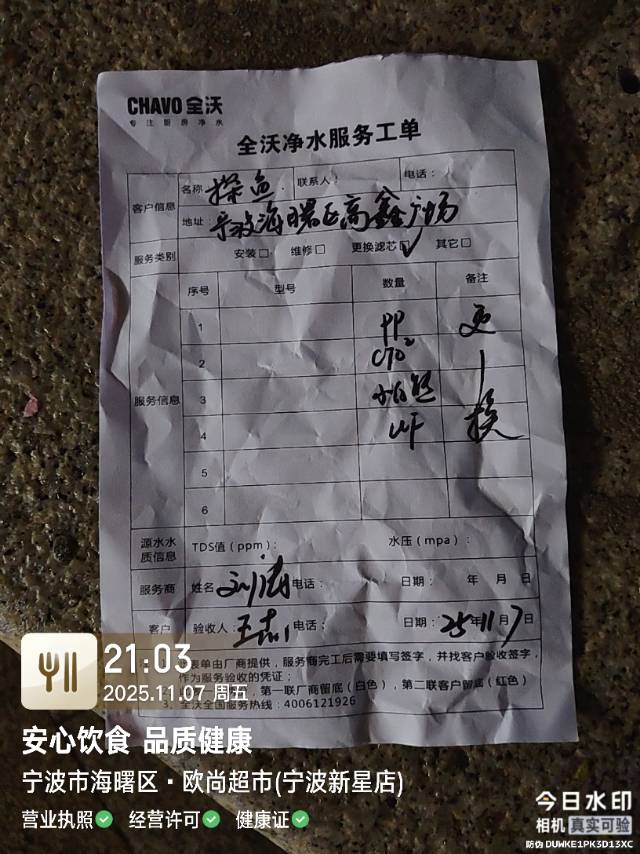 CHAVO 全沃
专注厨房净水
全沃净水服务工单
客户信息
名称 探鱼 联系人： 电话：
地址 宁波海曙区高鑫广场
服务类别 安装□ 维修□ 更换滤芯☑ 其它□
服务信息
序号 型号 数量 备注
1 PP 更
2 CTO
3
4 UF 换
5
6
源水水质信息 TDS值（ppm）： 水压（mpa）：
服务商 姓名 刘涛 电话： 日期： 年 月 日
客户 验收人： 电话： 日期：25年11月7日
表单由厂商提供，服务商完工后需要填写签字，并找客户验收签字，
作为服务验收的凭证；
，第一联厂商留底（白色），第二联客户留底（红色）
3、全沃全国服务热线：4006121926
21:03
2025.11.07 周五
安心饮食 品质健康
宁波市海曙区·欧尚超市(宁波新星店)
营业执照 经营许可 健康证
今日水印
相机 真实可验
防伪 DUWKE1PK3D13XC